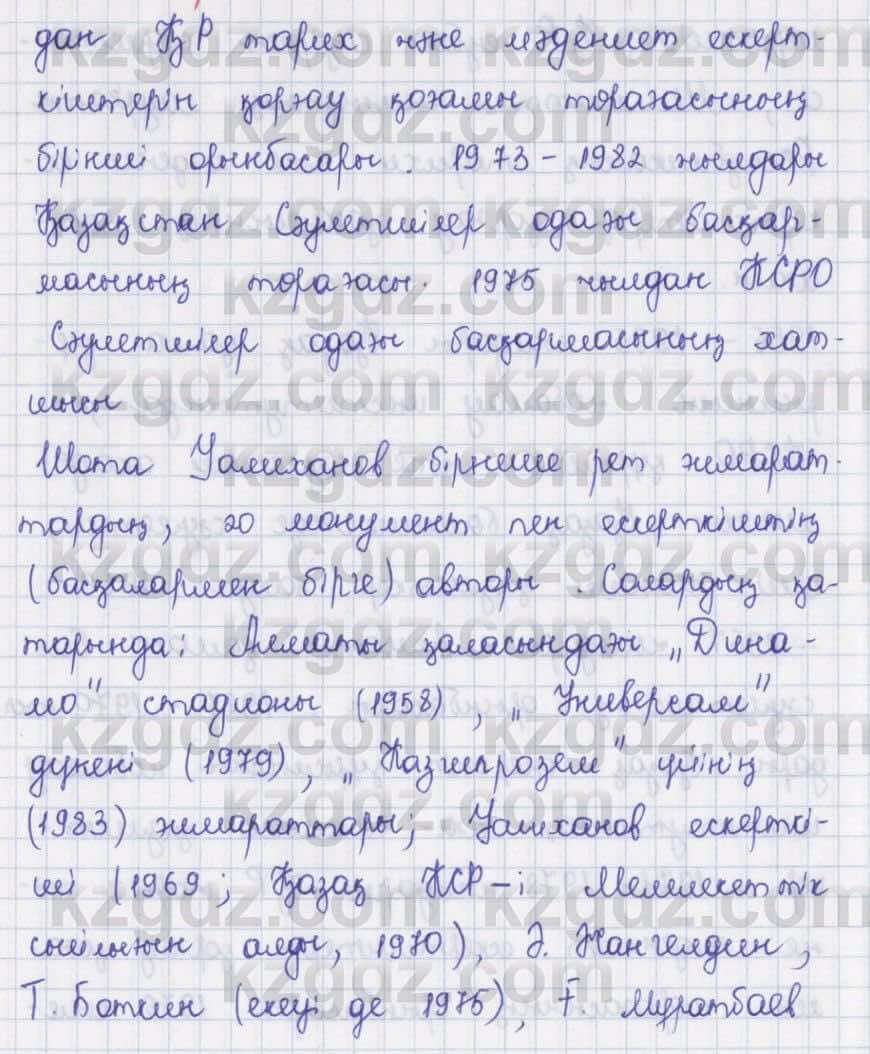 дан ҚР тарих және мәдениет ескерт-
кіштерін қорғау қоғамы төрағасының
бірінші орынбасары. 1973 - 1982 жылдары
Қазақстан Сәулетшілер одағы басқар-
масының төрағасы. 1975 жылдан КСРО
Сәулетшілер одағы басқармасының хат-
шысы
Шота Уәлиханов бірнеше рет ғимарат-
тардың, 20 монумент пен ескерткіштің
(басқалармен бірге) авторы. Солардың қа-
тарында: Алматы қаласындағы „Дина-
мо" стадионы (1958), „Универсам"
дүкені (1979), „Казгипрозем" үйінің
(1983) ғимараттары; Уәлиханов ескерткі-
ші (1969; Қазақ КСР-і Мемлекеттік
сыйлығын алды, 1970), Ә. Жангелдин,
Т. Бөткин (екеуі де 1975), Ғ. Мұратбаев
kzgdz.com